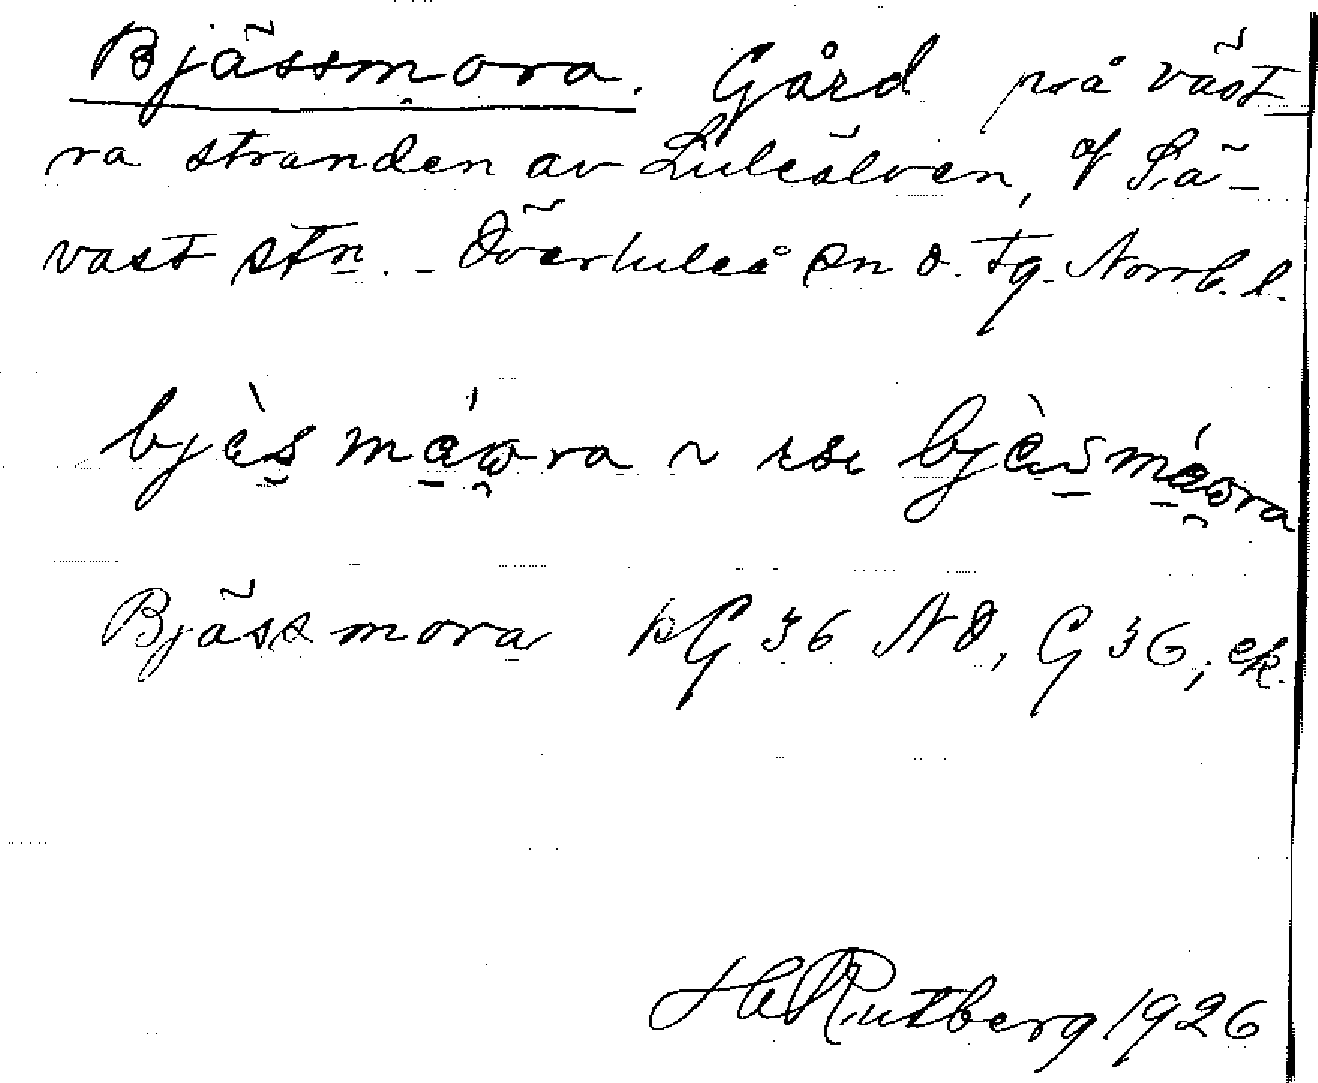 Bjässmora. Gård på väst
ra stranden av Luleälven, Sä-
vast stn. - Överluleå sn o. tg. Norrb. l.
bjæ̀s mɑ́ɷra ~ bjæ̀s mɑ́ɷra
Bjässmora G 36 NO, G 36, ek.
H Rutberg 1926